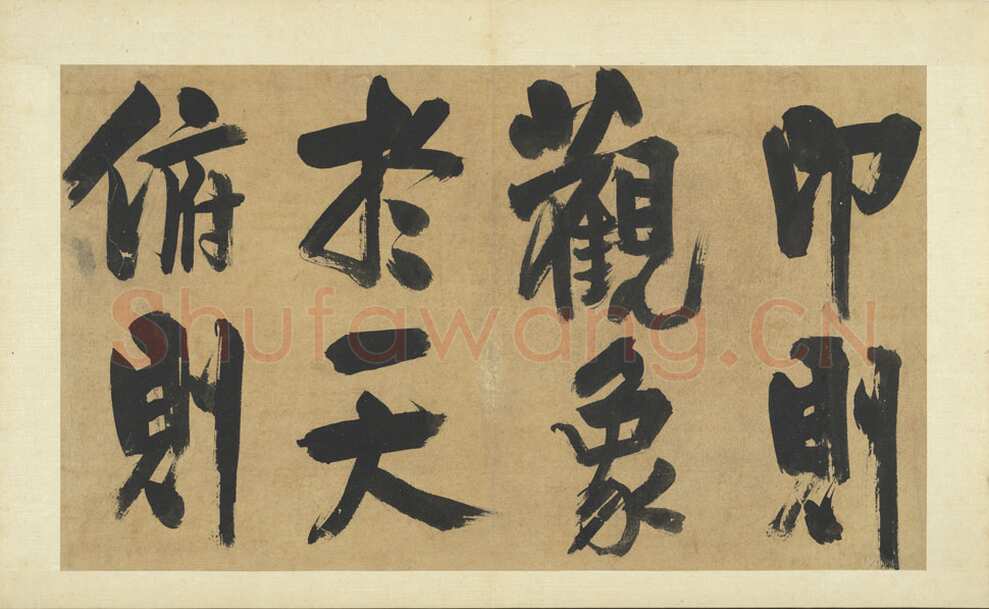 卬則
觀象
於天
俯則
Shufawang.CN